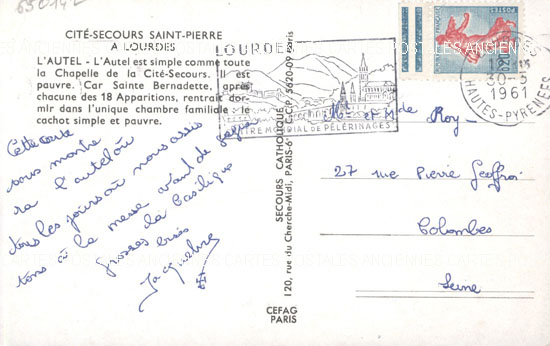 65014L
CITÉ-SECOURS SAINT-PIERRE
A LOURDES
L'AUTEL - L'Autel est simple comme toute
la Chapelle de la Cité-Secours. Il est
pauvre. Car Sainte Bernadette, après
chacune des 18 Apparitions, rentrait dor-
mir dans l'unique chambre familiale : le
cachot simple et pauvre.
Cette carte
vous montre
ra l'autel où
tous les jours où nous assis
tons à la messe avant de gagner
la Basilique
grosses bises
Jacqueline
SECOURS CATHOLIQUE
120, rue du Cherche-Midi, PARIS-6e - C.C.P. 5620-09 Paris
CEFAG
PARIS
LOURDES
CENTRE MONDIAL DE PÈLERINAGES
POSTES
0,20
LOURDES
30-5
1961
HAUTES-PYRENEES
Mr et Mme de Roy
27 rue Pierre Geoffroi
Colombes
Seine
CARTES POSTALES ANCIENNES